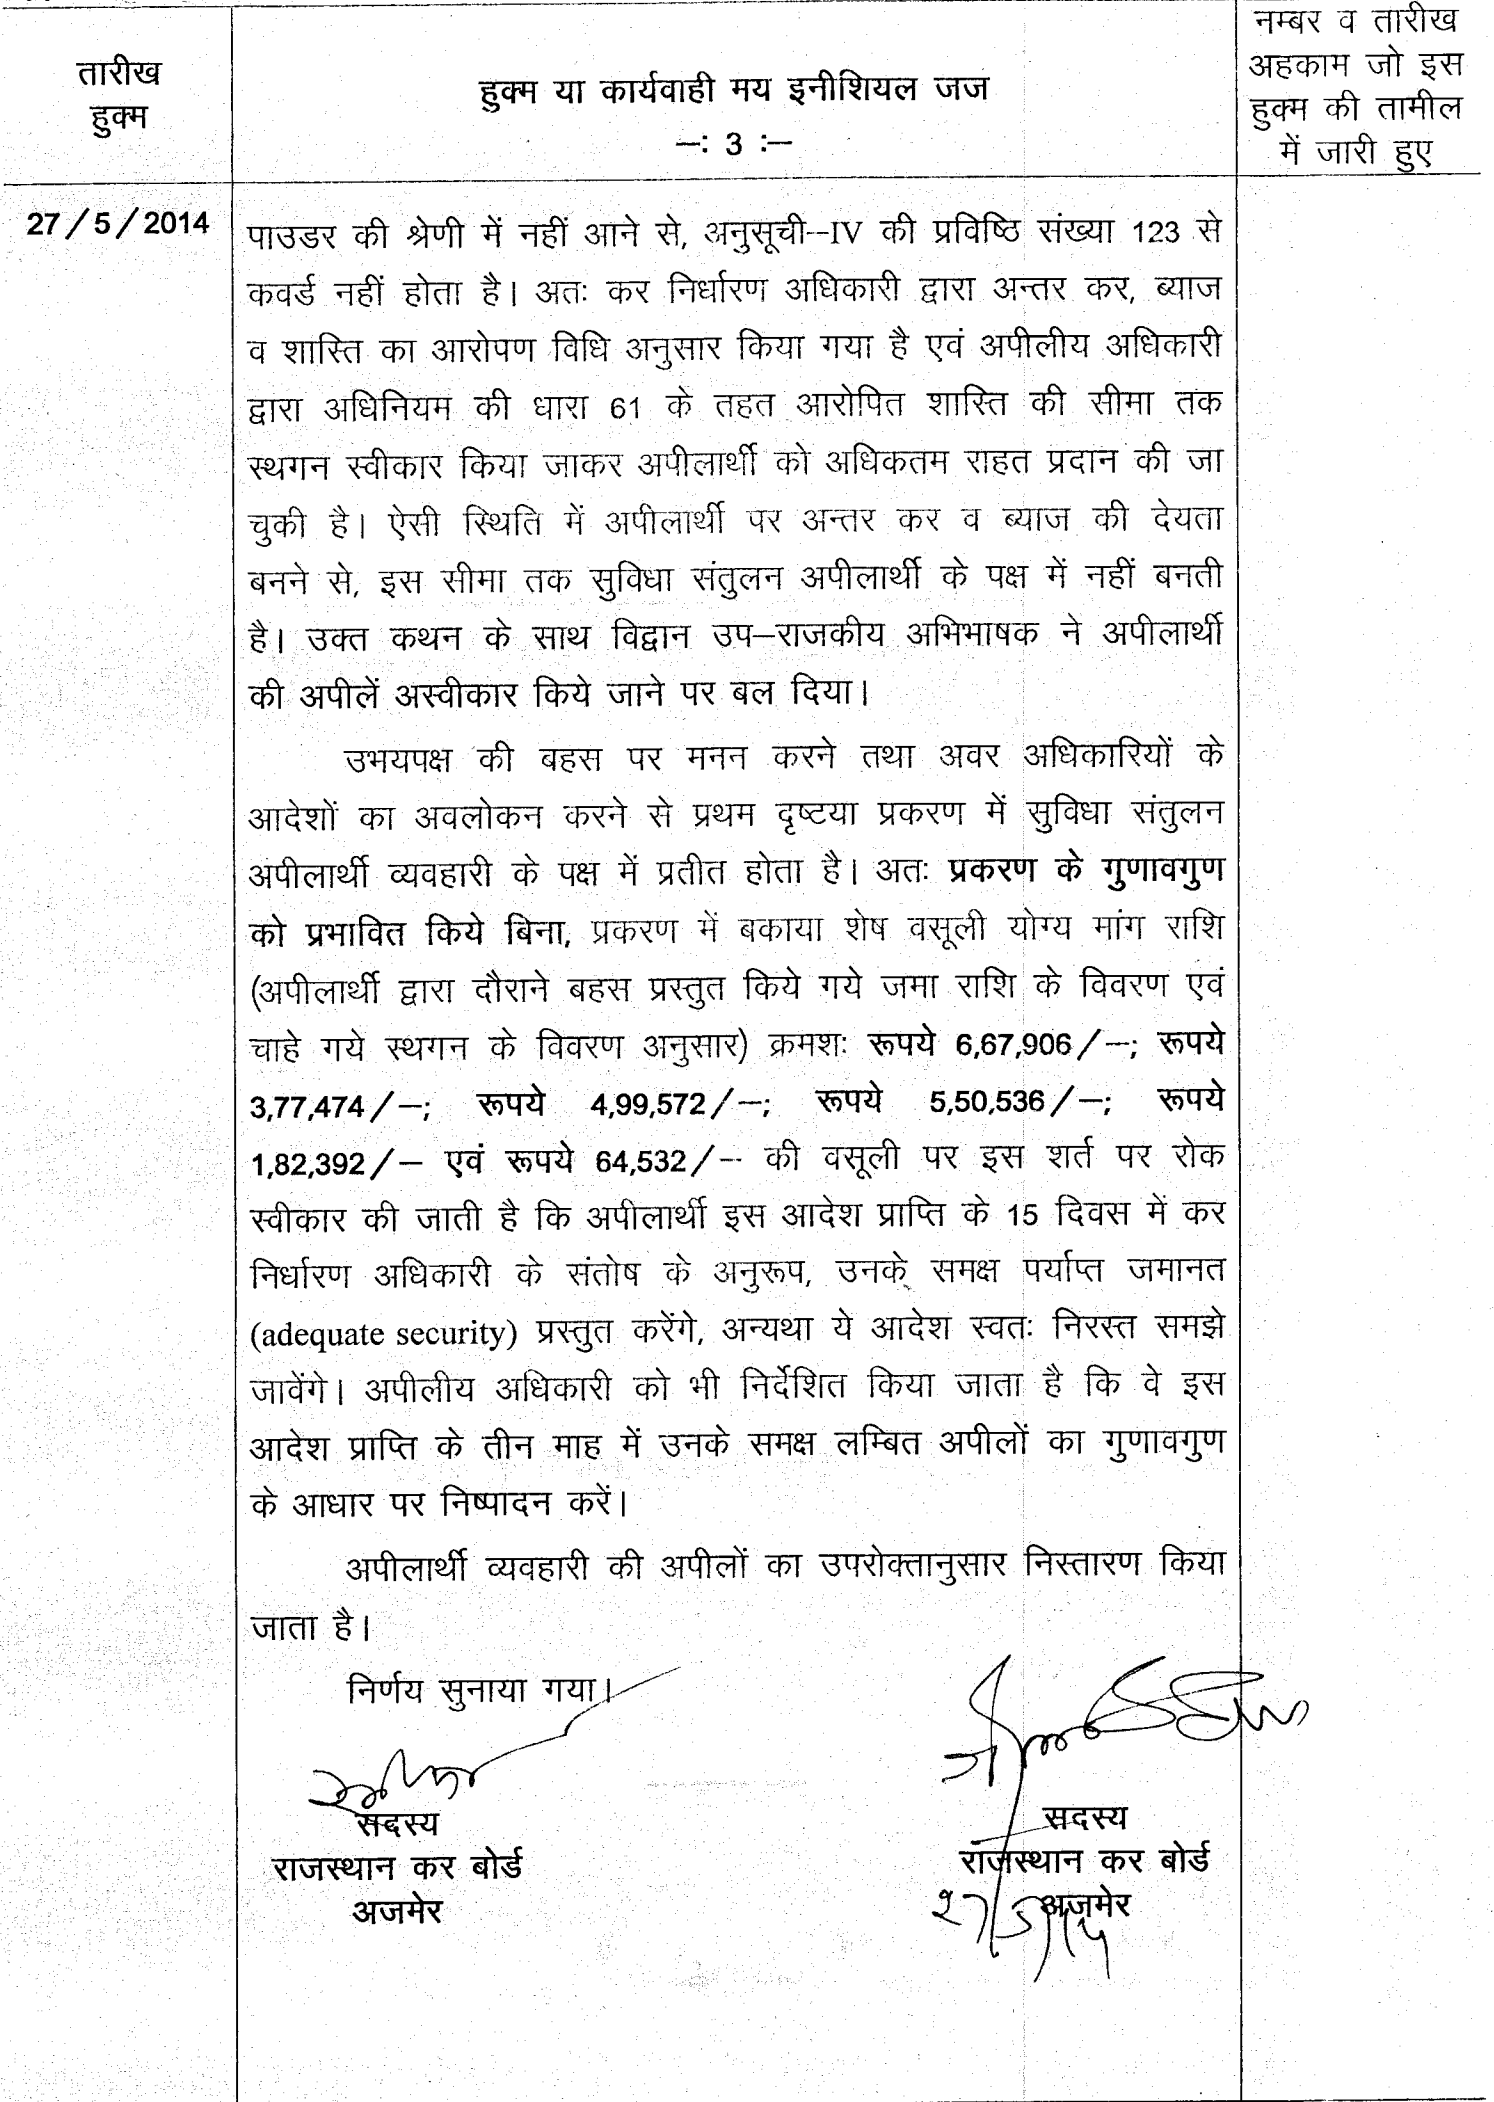 तारीख
हुक्म
हुक्म या कार्यवाही मय इनीशियल जज
–: 3 :–
नम्बर व तारीख
अहकाम जो इस
हुक्म की तामील
में जारी हुए
27/5/2014
पाउडर की श्रेणी में नहीं आने से, अनुसूची–IV की प्रविष्ठि संख्या 123 से
कवर्ड नहीं होता है। अतः कर निर्धारण अधिकारी द्वारा अन्तर कर, ब्याज
व शास्ति का आरोपण विधि अनुसार किया गया है एवं अपीलीय अधिकारी
द्वारा अधिनियम की धारा 61 के तहत आरोपित शास्ति की सीमा तक
स्थगन स्वीकार किया जाकर अपीलार्थी को अधिकतम राहत प्रदान की जा
चुकी है। ऐसी स्थिति में अपीलार्थी पर अन्तर कर व ब्याज की देयता
बनने से, इस सीमा तक सुविधा संतुलन अपीलार्थी के पक्ष में नहीं बनती
है। उक्त कथन के साथ विद्वान उप–राजकीय अभिभाषक ने अपीलार्थी
की अपीलें अस्वीकार किये जाने पर बल दिया।
उभयपक्ष की बहस पर मनन करने तथा अवर अधिकारियों के
आदेशों का अवलोकन करने से प्रथम दृष्टया प्रकरण में सुविधा संतुलन
अपीलार्थी व्यवहारी के पक्ष में प्रतीत होता है। अतः प्रकरण के गुणावगुण
को प्रभावित किये बिना, प्रकरण में बकाया शेष वसूली योग्य मांग राशि
(अपीलार्थी द्वारा दौराने बहस प्रस्तुत किये गये जमा राशि के विवरण एवं
चाहे गये स्थगन के विवरण अनुसार) क्रमशः रूपये 6,67,906/–; रूपये
3,77,474/–; रूपये 4,99,572/–; रूपये 5,50,536/–; रूपये
1,82,392/– एवं रूपये 64,532/– की वसूली पर इस शर्त पर रोक
स्वीकार की जाती है कि अपीलार्थी इस आदेश प्राप्ति के 15 दिवस में कर
निर्धारण अधिकारी के संतोष के अनुरूप, उनके समक्ष पर्याप्त जमानत
(adequate security) प्रस्तुत करेंगे, अन्यथा ये आदेश स्वतः निरस्त समझे
जावेंगे। अपीलीय अधिकारी को भी निर्देशित किया जाता है कि वे इस
आदेश प्राप्ति के तीन माह में उनके समक्ष लम्बित अपीलों का गुणावगुण
के आधार पर निष्पादन करें।
अपीलार्थी व्यवहारी की अपीलों का उपरोक्तानुसार निस्तारण किया
जाता है।
निर्णय सुनाया गया।
सदस्य
राजस्थान कर बोर्ड
अजमेर
सदस्य
राजस्थान कर बोर्ड
अजमेर